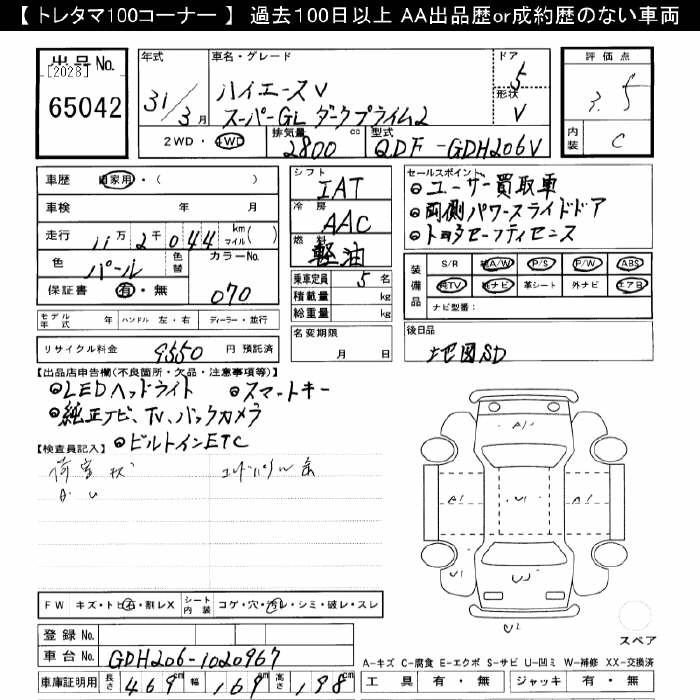 【 トレタマ100コーナー 】 過去100日以上 AA出品歴or成約歴のない車両
出品No.
[2028]
65042
年式
31/3月
車名・グレード
ハイエースV
スーパーGL ダークプライム2
ドア
5
形状
V
評価点
3.5
内装
C
2WD・4WD
排気量
2800 cc
型式
QDF-GDH206V
車歴 自家用・( )
車検 年 月
走行 11万2千044 km マイル( )
色 パール
色替
カラーNo.
070
保証書 有・無
シフト
IAT
冷房
AAC
燃料
軽油
乗車定員 5 名
積載量 kg
総重量 kg
セールスポイント
ユーザー買取車
両側パワースライドドア
トヨタセーフティセンス
装備品
S/R 純A/W P/S P/W ABS
純TV 純ナビ 革シート 外ナビ エアB
ナビ型番:
モデル年式 年 ハンドル 左・右 ディーラー・並行
リサイクル料金 9550 円 預託済
名変期限
月 日
後日品
地図SD
【出品店申告欄(不良箇所・欠品・注意事項等)】
LEDヘッドライト スマートキー
純正ナビ、TV、バックカメラ
ビルトインETC
【検査員記入】
荷室
A1
A1
U1
A1
U1
FW キズ・トビ石・割レX
シート内装
コゲ・穴・汚レ・シミ・破レ・スレ
スペア
登録No.
車台No. GDH206-1020967
A-キズ C-腐食 E-エクボ S-サビ U-凹ミ W-補修 XX-交換済
車庫証明用 長さ 469cm 幅 169cm 高さ 198cm
工具 有・無 ジャッキ 有・無